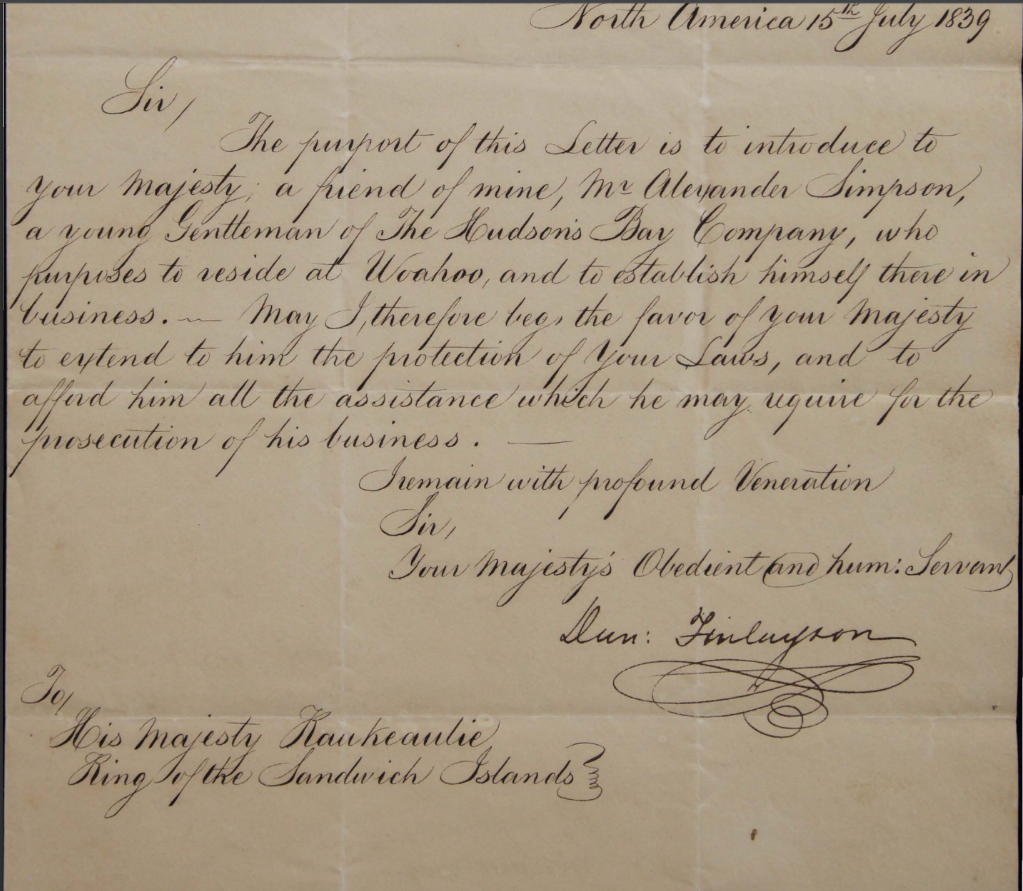 North America 15th July 1839
Sir,
The purport of this Letter is to introduce to
your Majesty, a friend of mine, Mr Alexander Simpson,
a young Gentleman of The Hudson's Bay Company, who
purposes to reside at Woahoo, and to establish himself there in
business. — May I, therefore beg, the favor of your Majesty
to extend to him the protection of Your Laws, and to
afford him all the assistance which he may require for the
prosecution of his business. —
I remain with profound Veneration
Sir,
Your Majesty's Obedient and hum: Servant
Dun: Finlayson
To,
His Majesty Kaukeaulie
King of the Sandwich Islands